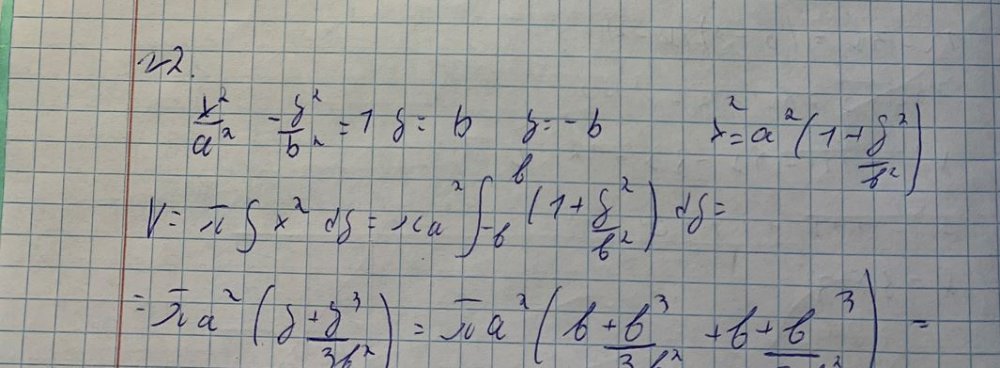 №2.
x²/a² - y²/b² = 1 y = b y = -b x² = a²(1 + y²/b²)
V = π∫x² dy = πa²∫_{-b}^{b}(1 + y²/b²) dy =
= πa²(y + y³/3b²) = πa²(b + b³/3b² + b + b³/3b²) =